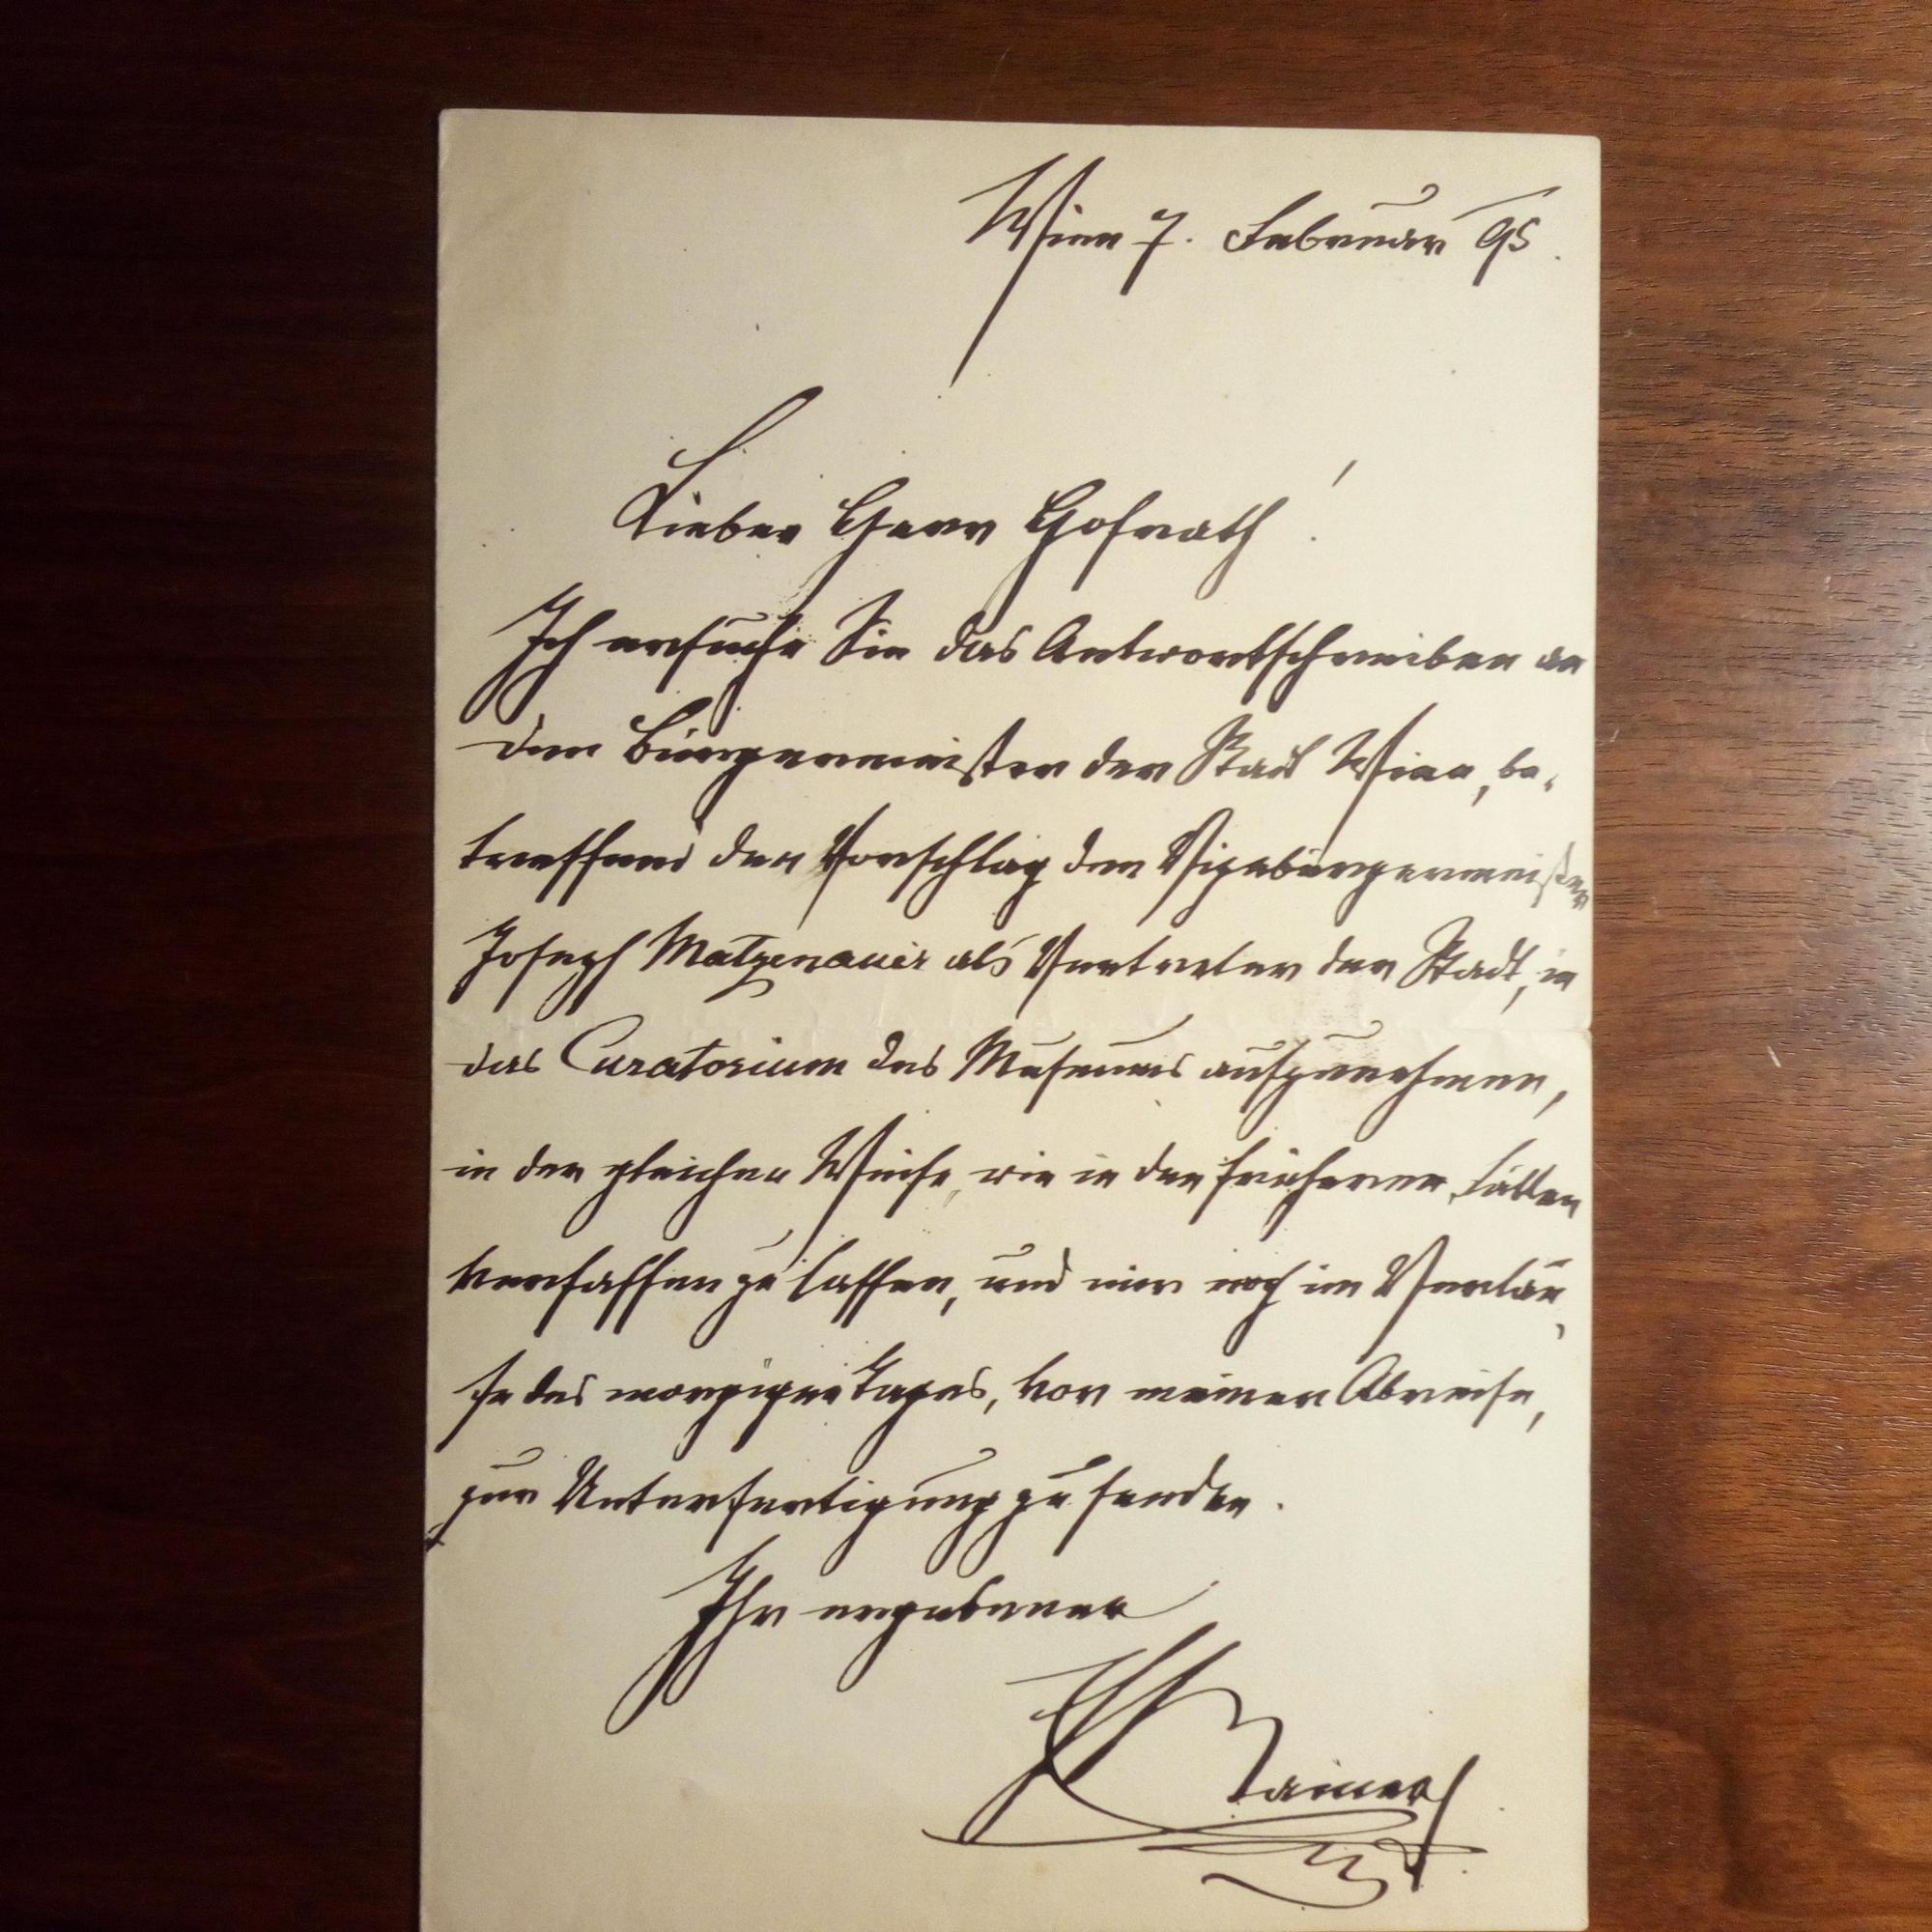 Wien 7. Februar 95.
Lieber Herr Hofrath!
Ich ersuche Sie das Antwortschreiben an
den Bürgermeister der Stadt Wien, be-
treffend den Vorschlag den Vizebürgermeister
Joseph Matzenauer als Vertreter der Stadt, in
das Curatorium des Museums aufzunehmen,
in der gleichen Weise, wie in den früheren Fällen
verfassen zu lassen, und mir noch im Verlau-
fe des morgigen Tages, vor meiner Abreise,
zur Unterfertigung zu senden.
Ihr ergebener
Rainer